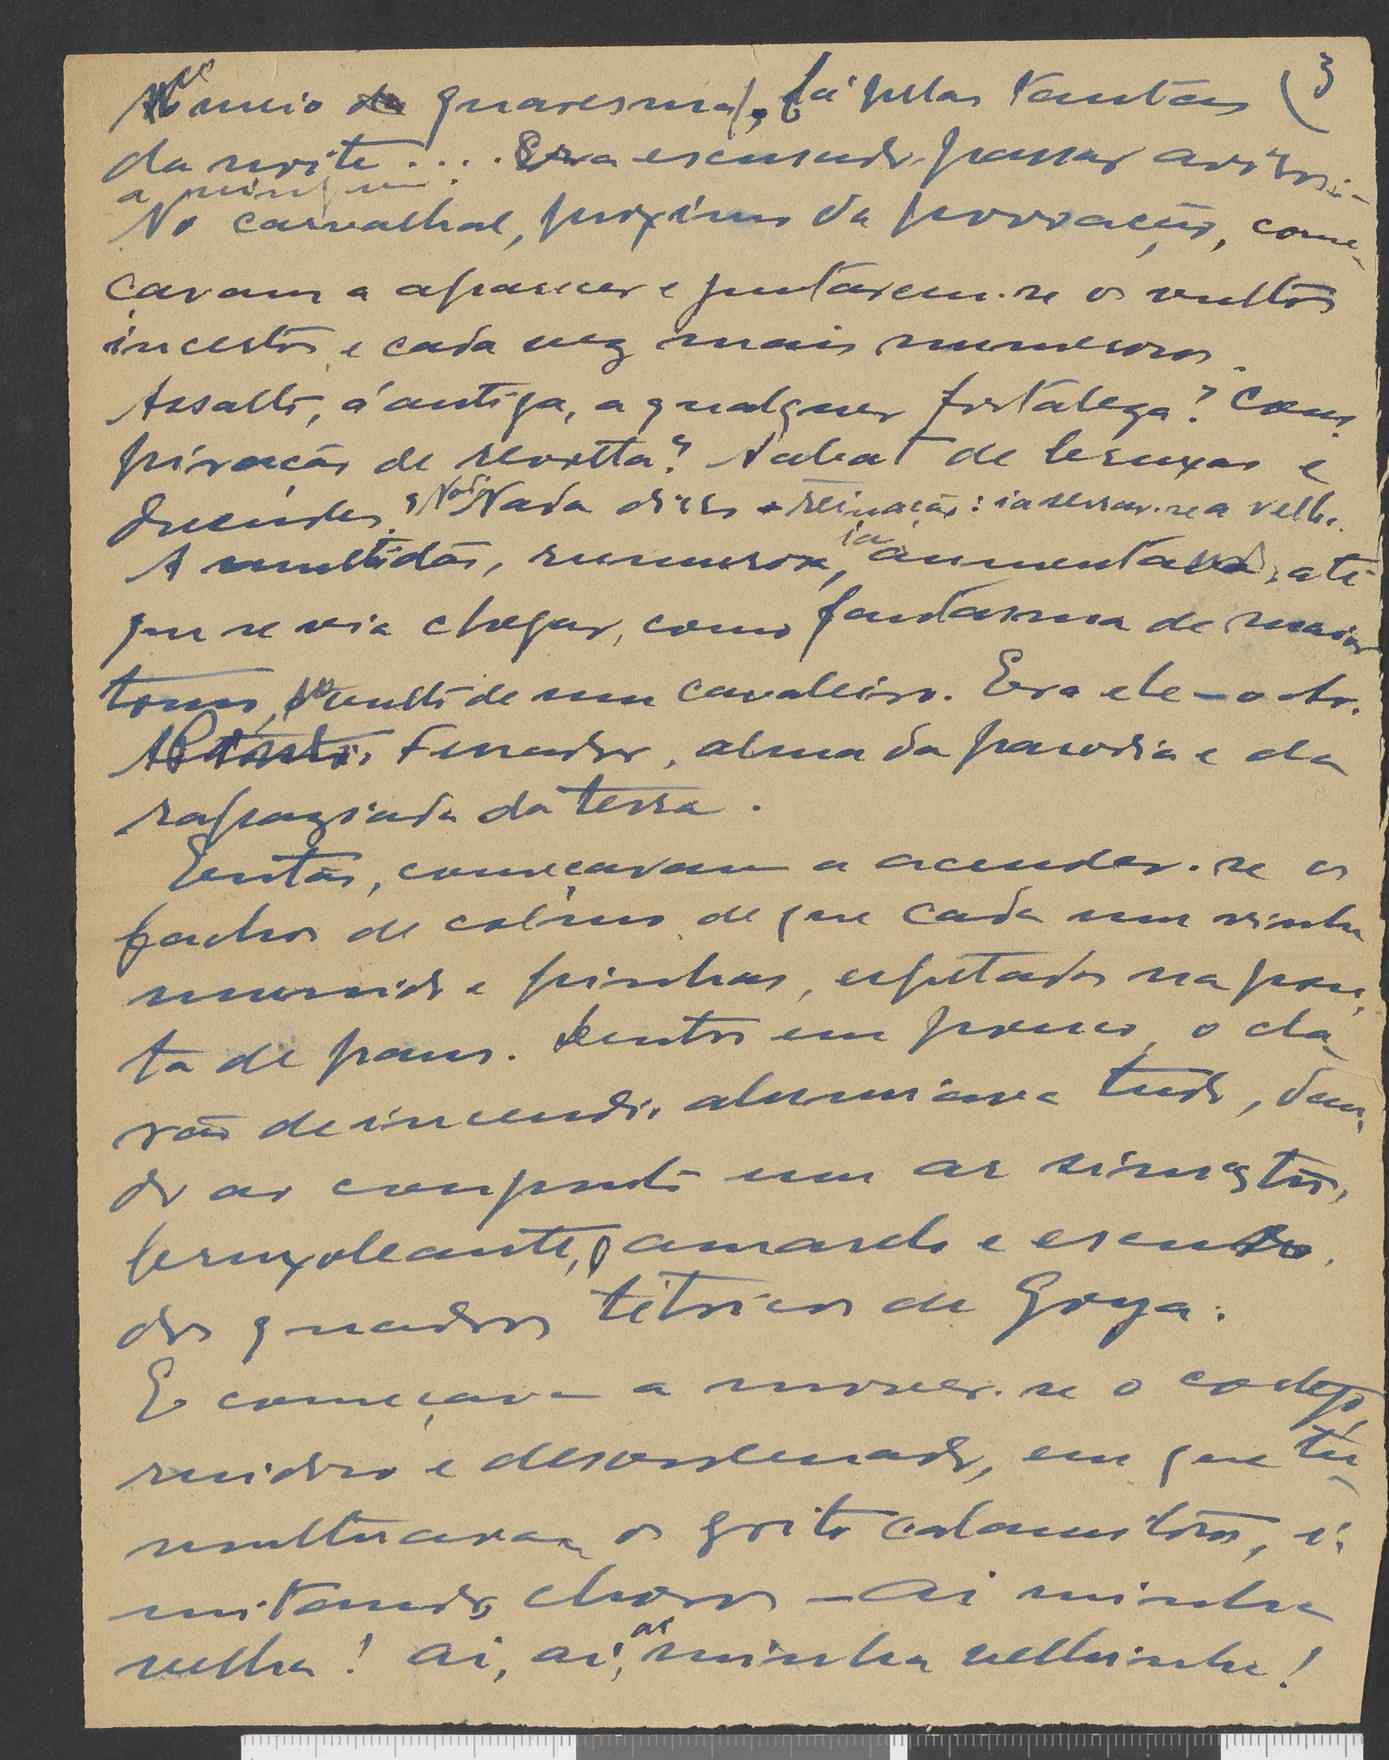 3
No meio da quaresma, lá pelas tantas
da noite.... Era escusado passar aviso
a ninguem.
No carvalhal, proximo da povoação, come-
çavam a aparecer e juntarem-se os vultos
incertos e cada vez mais numerosos.
Assalto, á antiga, a qualquer fortaleza? Cons-
piração de revolta? Sabat de bruxas e
duendes? Nada disso reinação: ia serrar-se a velha.
A multidão, rumorosa, ia aumentando, até
que se via chegar, como fantasma de maior
tomo, o vulto de um cavaleiro. Era ele — o dr.
Fernandes, alma da parodia e da
rapaziada da terra.
Então, começavam a acender-se os
fachos de colmo de que cada um vinha
munido e pinhas, espetadas na pon-
ta de paus. Dentro em pouco, o cla-
rão de incendio alumiava tudo, dan-
do ao conjunto um ar sinistro,
bruxoleante, amarelo e escuro,
dos quadros tétricos de Goya.
E começava a mover-se o cortejo
ruidoso e desordenado, em que tu-
multuavam os gritos calamitosos, i-
mitando choros — Ai minha
velha! Ai, ai, ai minha velhinha!